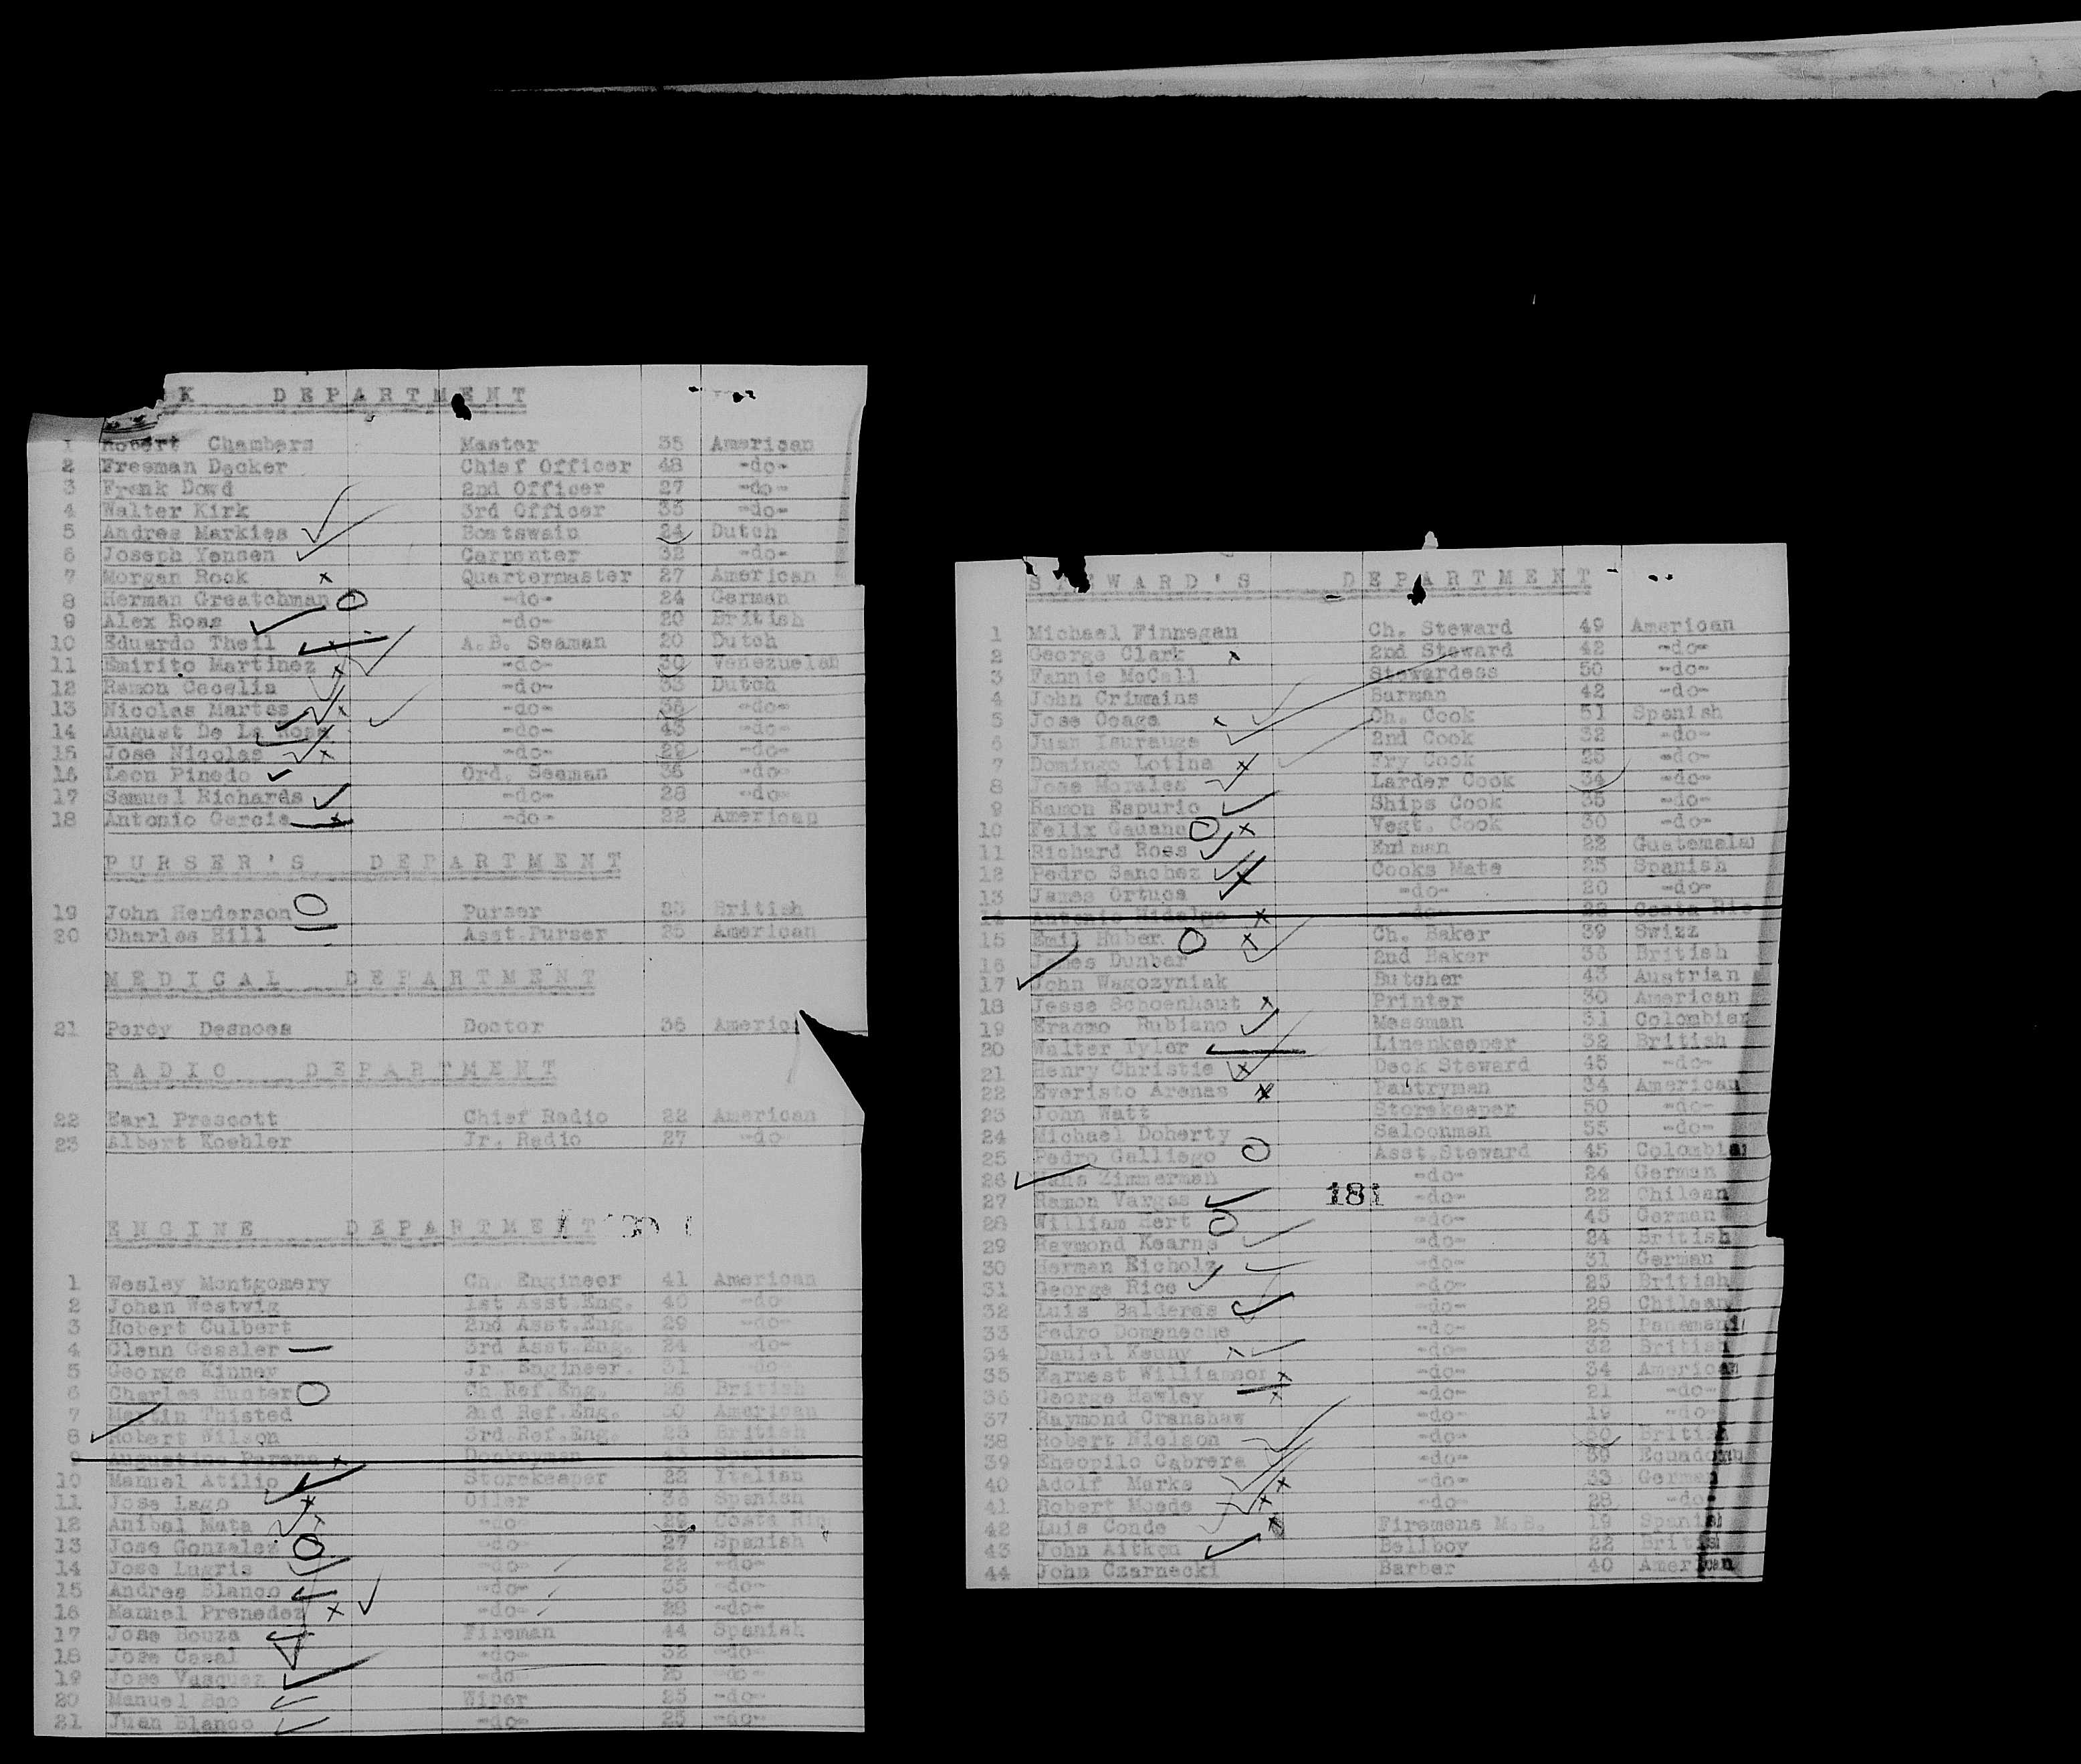 K DEPARTMENT
1 Robert Chambers Master 35 American
2 Freeman Decker Chief Officer 48 -do-
3 Frank Dowd 2nd Officer 27 -do-
4 Walter Kirk 3rd Officer 35 -do-
5 Andres Markies Boatswain 24 Dutch
6 Joseph Yensen Carpenter 32 -do-
7 Morgan Rook x Quartermaster 27 American
8 Herman Greatchman -do- 24 German
9 Alex Ross -do- 20 British
10 Eduardo Theil A.B. Seaman 20 Dutch
11 Emirito Martinez x -do- 30 Venezuelan
12 Ramon Cecelia -do- 33 Dutch
13 Nicolas Martes x -do- 38 -do-
14 August De La Rosa -do- 43 -do-
15 Jose Nicolas x -do- 29 -do-
16 Leon Pinedo Ord. Seaman 36 -do-
17 Samuel Richards -do- 28 -do-
18 Antonio Garcia x -do- 22 American
PURSER'S DEPARTMENT
19 John Henderson Purser British
20 Charles Hill Asst.Purser 25 American
MEDICAL DEPARTMENT
21 Percy Desnoes Doctor 36 Americ
RADIO DEPARTMENT
22 Earl Prescott Chief Radio 22 American
23 Albert Koehler Jr. Radio 27 -do
ENGINE DEPARTMENT
1 Wesley Montgomery Ch. Engineer 41 American
2 Johan Westvig 1st Asst.Eng. 40 -do
3 Robert Culbert 2nd Asst.Eng. 29 -do-
4 Glenn Gessler 3rd Asst.Eng. 24 -do-
5 George Kinney Jr. Engineer. 31 -do
6 Charles Hunter Ch.Ref.Eng. 26 British
7 Martin Thisted 2nd Ref.Eng. 30 American
8 Robert Wilson 3rd.Ref.Eng. 25 British
9 Augustine x Donkeyman 43 Spanish
10 Manuel Atilio Storekeeper 22 Italian
11 Jose Lago x Oiler 36 Spanish
12 Anibal Mata x -do- 29 Costa Ric
13 Jose Gonzalez -do- 27 Spanish
14 Jose Lugris -do- 22 -do-
15 Andres Blanco -do- 35 -do-
16 Manuel Prenedez x -do- 28 -do-
17 Jose Bouza Fireman 44 Spanish
18 Jose Casal -do- 32 -do-
19 Jose Vasquez -do 25 -do-
20 Manuel Wiper 25 -do-
21 Juan Blanco -do- 25 -do-
STEWARD'S DEPARTMENT
1 Michael Finnegan Ch. Steward 49 American
2 George Clark x 2nd Steward 42 -do-
3 Fannie McCall Stewardess 50 -do-
4 John Crimmins Barman 42 -do-
5 Jose Ocaga x Ch. Cook 51 Spanish
6 Juan Isurauga 2nd Cook 32 -do-
7 Domingo Lotina x Fry Cook 25 -do-
8 Jose Morales Larder Cook 34 -do-
9 Ramon Espurio Ships Cook 35 -do-
10 Felix x Vegt. Cook 30 -do-
11 Richard Ross 22 Guatemalan
12 Pedro Sanchez Cooks Mate 25 Spanish
13 James Ortuga -do- 20 -do-
14 Antonio Hidalgo x -do- 22 Costa Ric
15 Emil Huber x Ch. Baker 39 Swizz
16 James Dunbar 2nd Baker 36 British
17 John Wagozyniak Butcher 43 Austrian
18 Jesse Schoenhaut x Printer 30 American
19 Erasmo Rubiano Messman 31 Colombian
20 Walter Tyler Linenkeeper 32 British
21 Henry Christie x Deck Steward 45 -do-
22 Everisto Arenas x Pantryman 34 American
23 John Watt Storekeeper 50 -do-
24 Michael Doherty Saloonman 55 -do-
25 Pedro Galliego Asst.Steward 45 Colombian
26 Hans Zimmerman -do- 24 German
27 Ramon Vargas 181 -do- 22 Chilean
28 William Hert -do- 45 German
29 Raymond Kearns -do- 24 British
30 Herman Eicholz -do- 31 German
31 George Rice -do- 25 British
32 Luis Balderas -do- 28 Chilean
33 Pedro Domeneche -do- 25
34 Daniel Kenny x -do- 32 British
35 Earnest Williamson x -do- 34 American
36 George Hawley x -do- 21 -do-
37 Raymond Cranshaw -do- 19 -do-
38 Robert Nielson -do- 30 British
39 Eheopilo Cabrera -do- 39
40 Adolf Merks x -do- 33 German
41 Robert Moede x -do- 28 -do-
42 Luis Conde x Firemens M.B. 19 Spanish
43 John Aitken Bellboy 22 British
44 John Czarnecki Barber 40 American